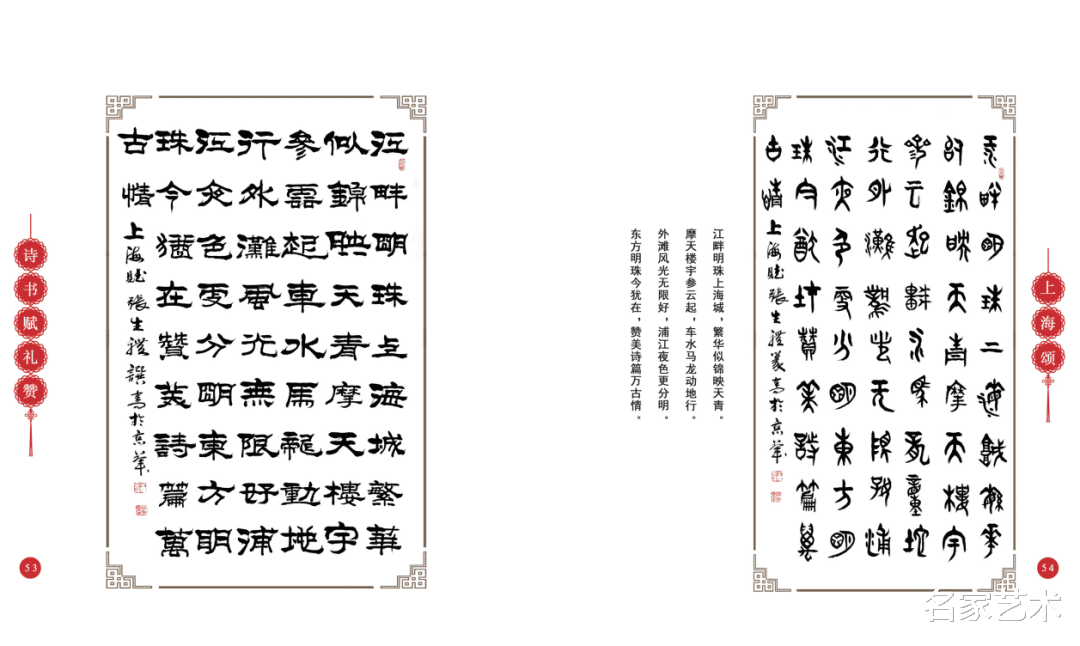 诗书赋礼赞
53
江畔明珠上海城繁華
似錦映天青摩天樓宇
參雲起車水馬龍動地
行外灘風光無限好浦
江夜色更分明東方明
珠今猶在贊美詩篇萬
古情
上海賦張生禮撰書於京華
江畔明珠上海城，繁华似锦映天青。
摩天楼宇参云起，车水马龙动地行。
外滩风光无限好，浦江夜色更分明。
东方明珠今犹在，赞美诗篇万古情。
江畔明珠上海城繁華
似錦映天青摩天樓宇
參云起車水馬龍動地
行外灘風光无限好浦
江夜色更分明東方明
珠今猶在贊美詩篇萬
古情
上海賦張生禮篆書於京華
上海颂
54
名家艺术